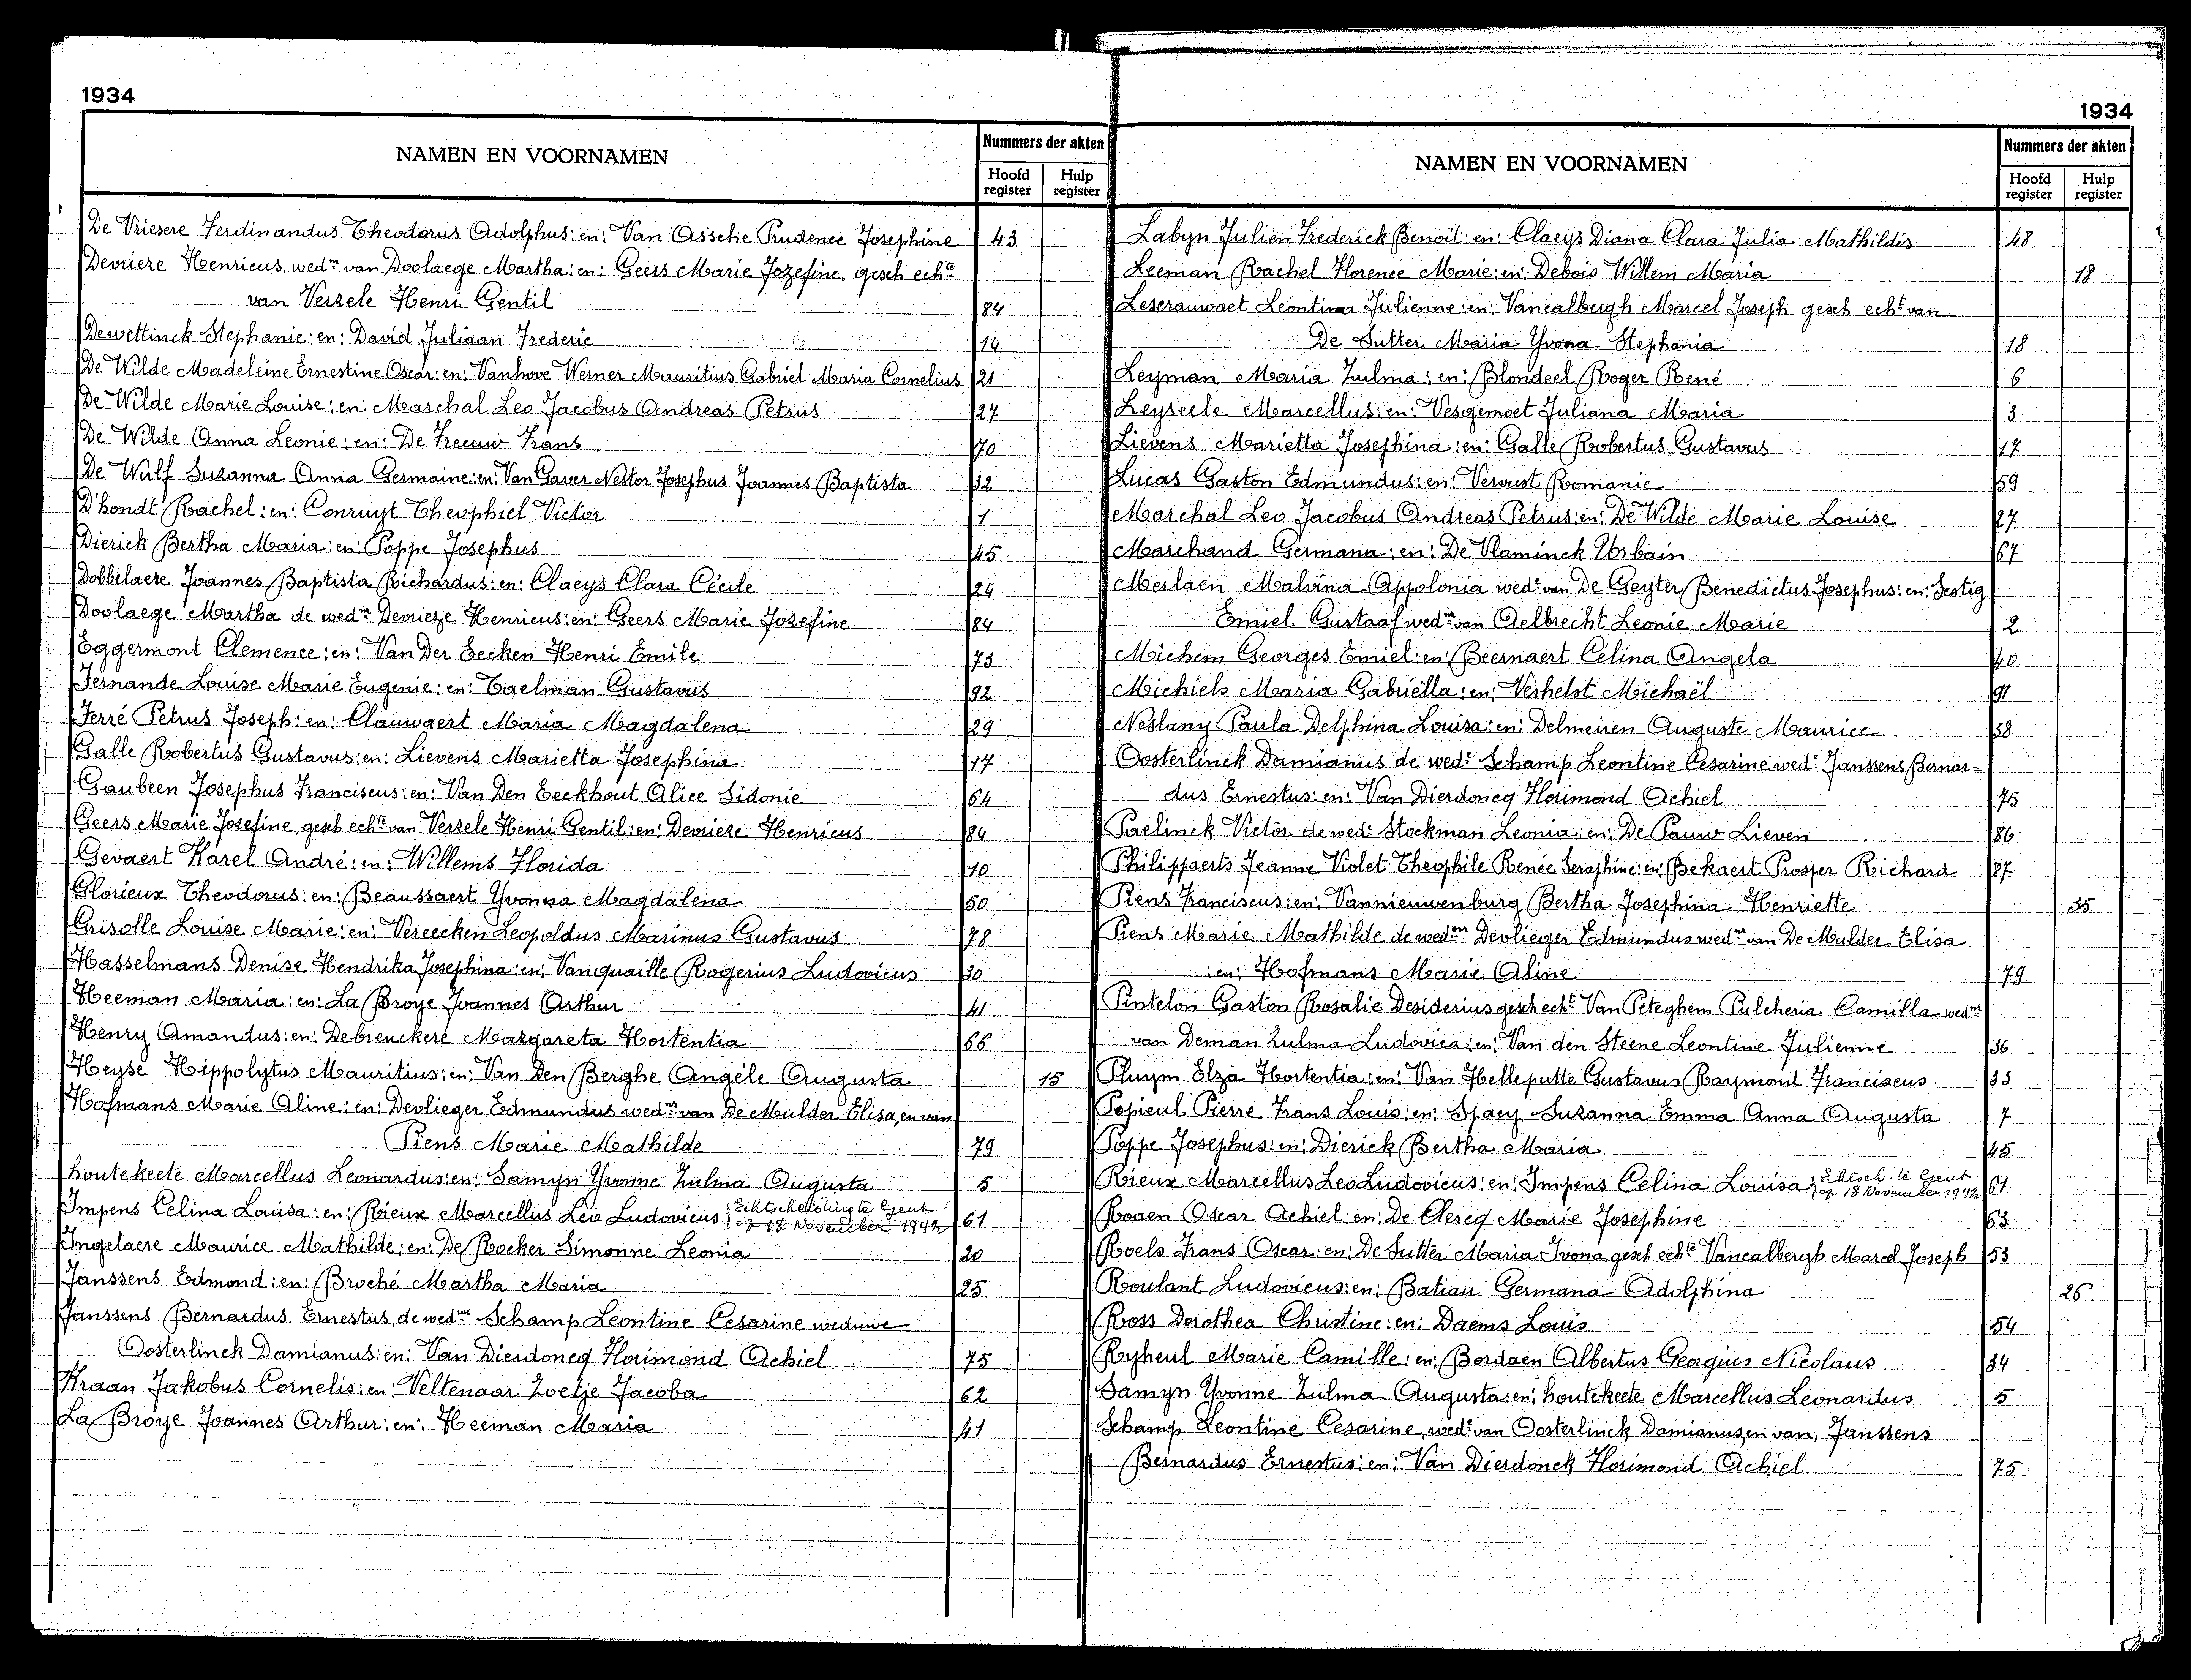 1934
NAMEN EN VOORNAMEN
Nummers der akten
Hoofd register
Hulp register
De Vriesere Ferdinandus Theodorus Adolphus:en: Van Assche Prudence Josephine 43
Devrieze Henricus, wedr van Doolaege Martha:en: Geers Marie Jozefine, gesch echte
van Verzele Henri Gentil 84
Dewettinck Stephanie:en: David Juliaan Frederic 14
De Wilde Madeleine Ernestine Oscar:en: Vanhove Werner Mauritius Gabriel Maria Cornelius 21
De Wilde Marie Louise:en: Marchal Leo Jacobus Andreas Petrus 27
De Wilde Anna Leonie:en: De Freeuw Frans 70
De Wulf Suzanna Anna Germaine:en: Van Gaver Nestor Josephus Joannes Baptista 32
D'hondt Rachel:en: Conruyt Theophiel Victor 1
Dierick Bertha Maria:en: Poppe Josephus 45
Dobbelaere Joannes Baptista Richardus:en: Claeys Clara Cécile 24
Doolaege Martha de wedr Devrieze Henricus:en: Geers Marie Jozefine 84
Eggermont Clemence:en: Van Der Eecken Henri Emile 73
Fernande Louise Marie Eugenie:en: Taelman Gustavus 92
Ferré Petrus Joseph:en: Clauwaert Maria Magdalena 29
Galle Robertus Gustavus:en: Lievens Marietta Josephina 17
Gaubeen Josephus Franciscus:en: Van Den Eeckhout Alice Sidonie 64
Geers Marie Josefine gesch echte van Verzele Henri Gentil:en: Devrieze Henricus 84
Gevaert Karel André:en: Willems Florida 10
Glorieux Theodorus:en: Beaussaert Yvonna Magdalena 50
Grisolle Louise Marie:en: Vereecken Leopoldus Marinus Gustavus 78
Hasselmans Denise Hendrika Josephina:en: Vanquaille Rogerius Ludovicus 30
Heeman Maria:en: La Broye Joannes Arthur 41
Henry Amandus:en: Debreuckere Margareta Hortentia 66
Heyse Hippolytus Mauritius:en: Van Den Berghe Angèle Augusta 15
Hofmans Marie Aline:en: Devlieger Edmundus wedr van De Mulder Elisa, en van
Piens Marie Mathilde 79
Houtekeete Marcellus Leonardus:en: Samyn Yvonne Zulma Augusta 5
Impens Celina Louisa:en: Rieux Marcellus Leo Ludovicus Echtscheiding te Gent op 18 November 1942 61
Ingelaere Maurice Mathilde:en: De Rocker Simonne Leonia 20
Janssens Edmond:en: Broché Martha Maria 25
Janssens Bernardus Ernestus, de wedr Schamp Leontine Cesarine weduwe
Oosterlinck Damianus:en: Van Dierdoncq Florimond Achiel 75
Kraan Jakobus Cornelis:en: Veltenaar Zoetje Jacoba 62
La Broye Joannes Arthur:en: Heeman Maria 41
1934
NAMEN EN VOORNAMEN
Nummers der akten
Hoofd register
Hulp register
Labyn Julien Frederick Benoit:en: Claeys Diana Clara Julia Mathildis 48
Leeman Rachel Florence Marie:en: Debois Willem Maria 18
Leserauwaet Leontina Julienne:en: Vancalbergh Marcel Joseph gesch echt van
De Sutter Maria Yvona Stephania 18
Leyman Maria Zulma:en: Blondeel Roger René 6
Leyseele Marcellus:en: Vesgemoet Juliana Maria 3
Lievens Marietta Josephina:en: Galle Robertus Gustavus 17
Lucas Gaston Edmundus:en: Vervust Romanie 59
Marchal Leo Jacobus Andreas Petrus:en: De Wilde Marie Louise 27
Marchand Germana:en: De Vlaminck Urbain 67
Merlaen Malvina Appolonia wede van De Geyter Benedictus Josephus:en: Sestig
Emiel Gustaaf wedr van Aelbrecht Leonie Marie 2
Michem Georges Emiel:en: Beernaert Célina Angela 40
Michiels Maria Gabriëlla:en: Verhelst Michaël 91
Neslany Paula Delphina Louisa:en: Delmeiren Auguste Maurice 38
Oosterlinck Damianus de wede Schamp Leontine Cesarine wede Janssens Bernar-
dus Ernestus:en: Van Dierdoncq Florimond Achiel 75
Paelinck Victor de wede Stockman Leonia:en: De Pauw Lieven 86
Philippaerts Jeanne Violet Theophile Renée Seraphine:en: Bekaert Prosper Richard 87
Piens Franciscus:en: Vannieuwenburg Bertha Josephina Henriette 35
Piens Marie Mathilde de wedr Devlieger Edmundus wedr van De Mulder Elisa
:en: Hofmans Marie Aline 79
Pintelon Gaston Rosalie Desiderius gesch echt Van Peteghem Pulcheria Camilla wedr
van Deman Zulma Ludovica:en: Van den Steene Leontine Julienne 36
Pluym Elza Hortentia:en: Van Helleputte Gustavus Raymond Franciscus 33
Popieul Pierre Frans Louis:en: Spaey Suzanna Emma Anna Augusta 7
Poppe Josephus:en: Dierick Bertha Maria 45
Rieux Marcellus Leo Ludovicus:en: Impens Celina Louisa Echtsch. te Gent op 18 November 1942 61
Rouen Oscar Achiel:en: De Clercq Marie Josephine 63
Roels Frans Oscar:en: De Sutter Maria Ivona gesch echte Vancalbergh Marcel Joseph 53
Roulant Ludovicus:en: Batiau Germana Adolphina 26
Ross Dorothea Christine:en: Daems Louis 54
Ryheul Marie Camille:en: Bordaen Albertus Georgius Nicolaus 34
Samyn Yvonne Zulma Augusta:en: houtekeete Marcellus Leonardus 5
Schamp Leontine Cesarine, wede van Oosterlinck Damianus, en van, Janssens
Bernardus Ernestus:en: Van Dierdonck Florimond Achiel 75